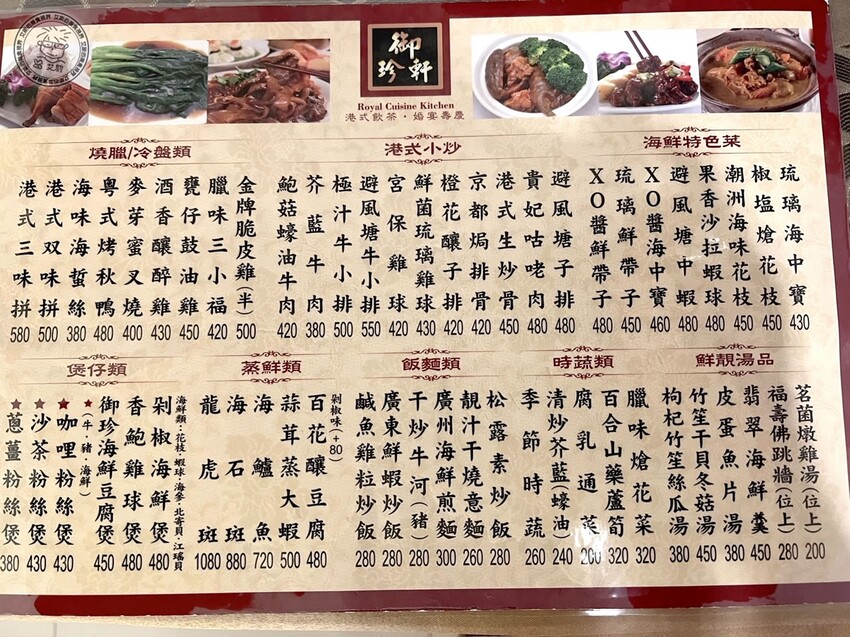 御珍軒
Royal Cuisine Kitchen
港式飲茶・婚宴壽慶
燒臘/冷盤類
港式三味拼 580
港式双味拼 500
海味海蜇絲 380
粵式烤秋鴨 480
麥芽蜜叉燒 400
酒香釀醉雞 430
甕仔鼓油雞 450
臘味三小福 420
金牌脆皮雞(半) 500
港式小炒
鮑菇蠔油牛肉 420
芥藍牛肉 380
極汁牛小排 500
避風塘牛小排 550
宮保雞球 420
鮮菌琉璃雞球 430
橙花釀子排 420
京都焗排骨 400
港式生炒骨 400
貴妃咕咾肉 400
避風塘子排 400
海鮮特色菜
XO醬鮮帶子 480
琉璃鮮帶子 450
XO醬海中寶 460
避風塘中蝦 480
果香沙拉蝦球 480
潮洲海味花枝 450
椒塩熗花枝 450
琉璃海中寶 430
煲仔類
★蔥薑粉絲煲 380
★沙茶粉絲煲 430
★咖哩粉絲煲 430
★(牛・豬・海鮮)
御珍海鮮豆腐煲 450
香鮑雞球煲 480
剁椒海鮮煲 480
海鮮類:花枝・蝦球・海參・北寄貝・江瑤貝
蒸鮮類
龍虎斑 1080
海石斑 880
海鱸魚 720
蒜茸蒸大蝦 500
百花釀豆腐 480
剁椒味(+80)
飯麵類
鹹魚雞粒炒飯 280
廣東鮮蝦炒飯 280
干炒牛河(豬) 280
廣州海鮮煎麵 300
靚汁干燒意麵 260
松露素炒飯 280
時蔬類
季節時蔬 260
清炒芥藍(蠔油) 240
腐乳通菜 200
百合山藥蘆筍 320
臘味熗花菜 320
鮮靚湯品
枸杞竹笙絲瓜湯 380
竹笙干貝冬菇湯 450
皮蛋魚片湯 380
翡翠海鮮羹 450
福壽佛跳牆(位上) 280
茗菌燉雞湯(位上) 200